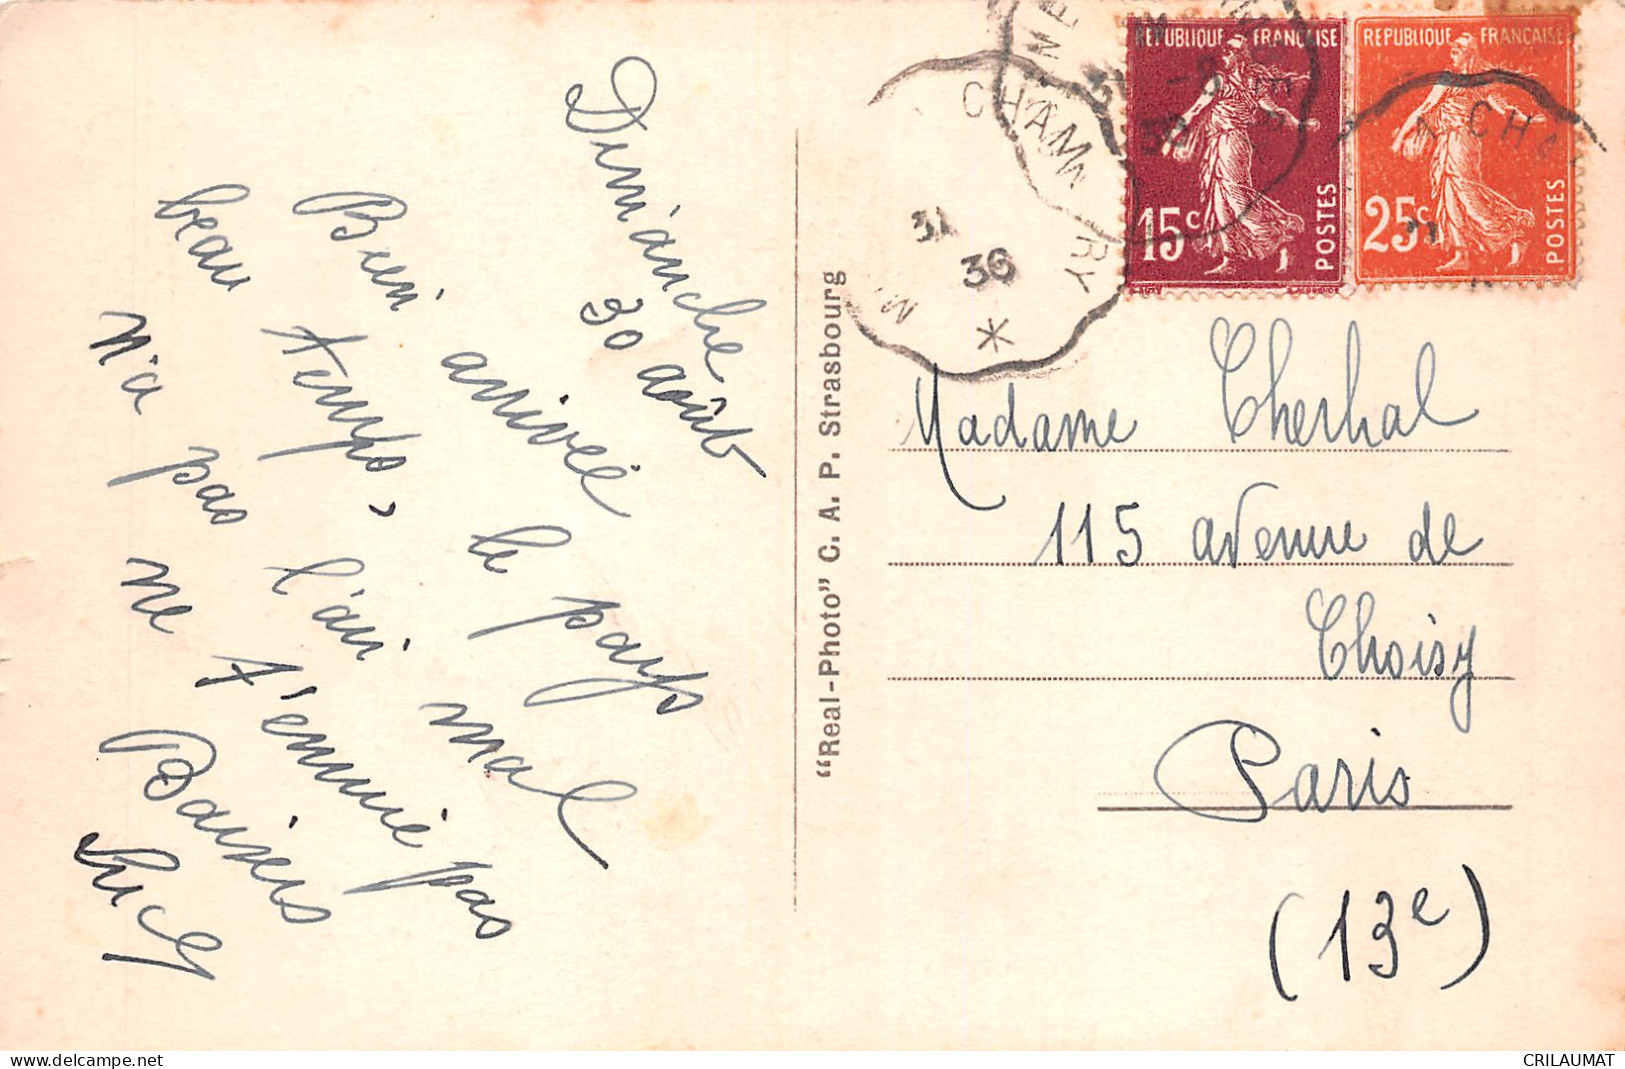 Dimanche
30 août
Bien arrivée le pays
beau temps, l'air mal
n'a pas ne t'ennuie pas
Baisers
Lucy
"Real-Photo" C. A. P. Strasbourg
CHAM RY
31
36
*
M
REPUBLIQUE FRANÇAISE
15c
POSTES
REPUBLIQUE FRANÇAISE
25c
POSTES
CHA
Madame Cherhal
115 avenue de
Choisy
Paris
(13e)
CRILAUMAT